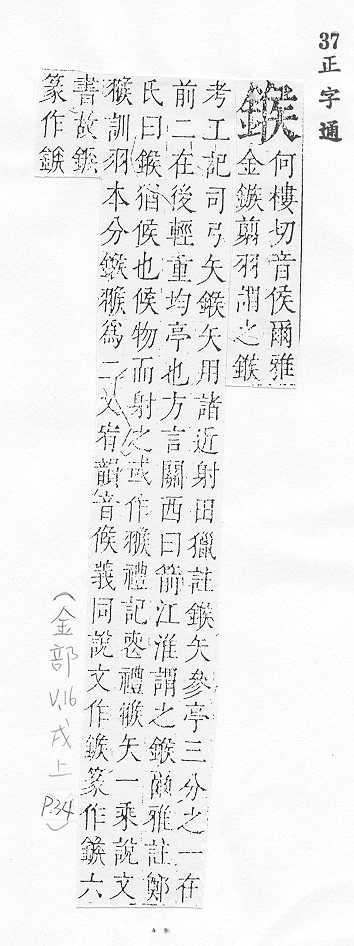 37正字通
鍭
何樓切音侯爾雅
金鏃翦羽謂之鍭
考工記司弓矢鍭矢用諸近射田獵註鍭矢參亭三分之一在
前二在後輕重均亭也方言關西曰箭江淮謂之鍭爾雅註鄭
氏曰鍭猶候也候物而射之或作猴禮記喪禮猴矢一乘說文
猴訓羽本分鍭猴為二又宥韻音候義同說文作鍭篆作鍭六
書故鍭
篆作鍭
(金部 V.16 戌上 P.34)